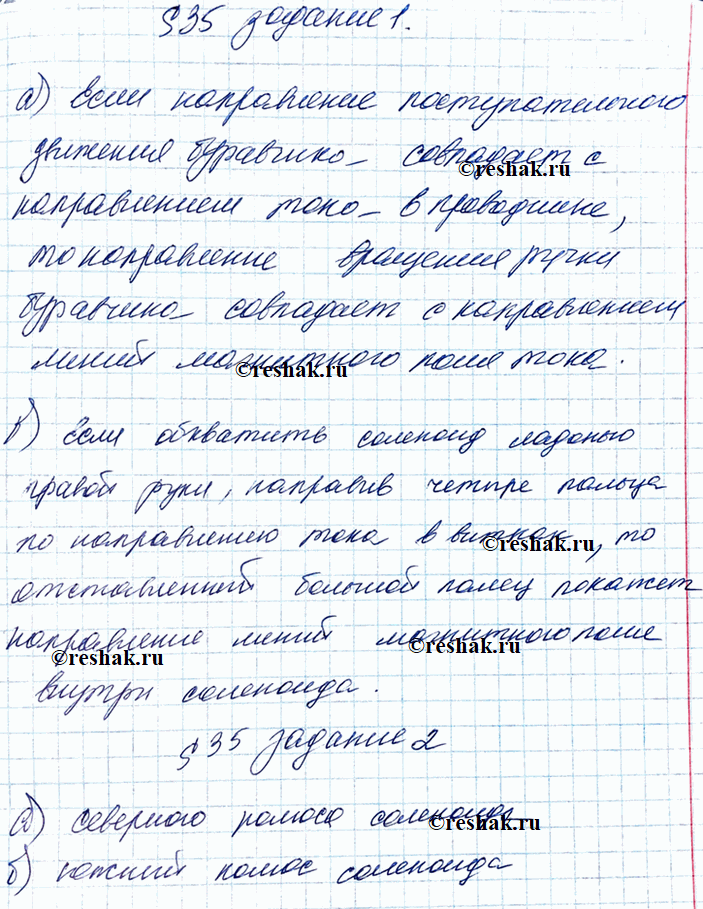 §35 задание 1.
а) Если направление поступательного
движения буравчика совпадает с
©reshak.ru
направлением тока в проводнике,
то направление вращения ручки
буравчика совпадает с направлением
линий магнитного поля тока.
©reshak.ru
б) Если обхватить соленоид ладонью
правой руки, направив четыре пальца
по направлению тока в витках, то
©reshak.ru
отставленный большой палец покажет
направление линий магнитного поля
©reshak.ru ©reshak.ru
внутри соленоида.
§35 задание 2
а) северного полюса соленоида
©reshak.ru
б) южный полюс соленоида